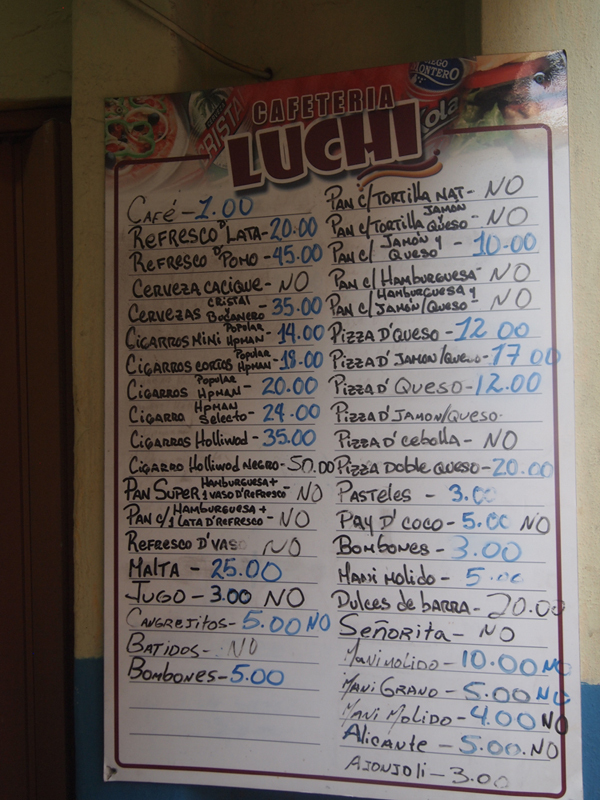 CAFETERIA
LUCHI
Café - 1.00
Refresco D' Lata - 20.00
Refresco D' Pomo - 45.00
Cerveza Cacique - NO
Cervezas Cristal y Bucanero - 35.00
Cigarros Mini Popular Hpman - 14.00
Cigarros cortos Popular Hpman - 18.00
Cigarros Popular Hpman - 20.00
Cigarro Hpman Selecto - 24.00
Cigarros Holliwod - 35.00
Cigarro Holliwod Negro - 50.00
Pan Super Hamburguesa + 1 vaso D'Refresco - NO
Pan c/ Hamburguesa + 1 Lata D'Refresco - NO
Refresco D'Vaso NO
Malta - 25.00
Jugo - 3.00 NO
Cangrejitos - 5.00 NO
Batidos - NO
Bombones - 5.00
Pan c/Tortilla Nat - NO
Pan c/Tortilla Jamon Queso - NO
Pan c/ Jamón y Queso - 10.00
Pan c/Hamburguesa - NO
Pan c/ Hamburguesa y Jamón/Queso - NO
Pizza D'Queso - 12 00
Pizza D' Jamon/Queso - 17 00
Pizza D' Queso - 12.00
Pizza D'Jamon/Queso -
Pizza D' cebolla - NO
Pizza Doble Queso - 20.00
Pasteles - 3.00
Pay D' coco - 5.00 NO
Bombones - 3.00
Mani Molido - 5.00
Dulces de barra - 20.00
Señorita - NO
Mani Molido - 10.00 NO
Mani Grano - 5.00 NO
Mani Molido - 4.00 NO
Alicante - 5.00. NO
Ajonjoli - 3.00